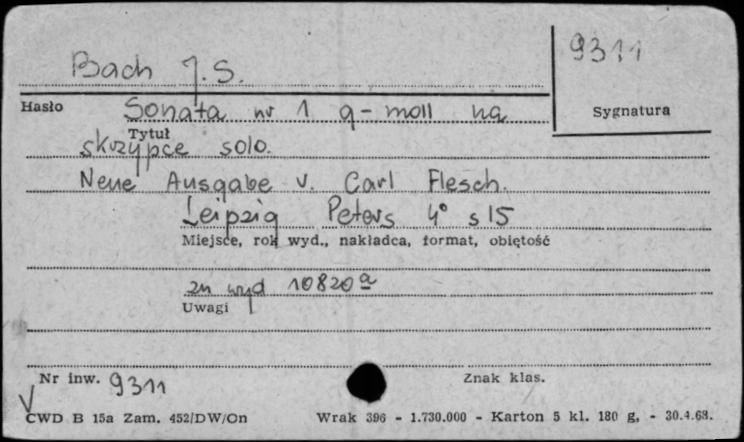 Bach J.S.
9311
Hasło
Sygnatura
Sonata nr 1 g-moll na
Tytuł
skrzypce solo.
Neue Ausgabe v. Carl Flesch.
Leipzig Peters 4° s 15
Miejsce, rok wyd., nakładca, format, obiętość
zn wyd 10820a
Uwagi
Nr inw. 9311
Znak klas.
V
CWD B 15a Zam. 452/DW/On Wrak 396 - 1.730.000 - Karton 5 kl. 180 g, - 30.4.68.